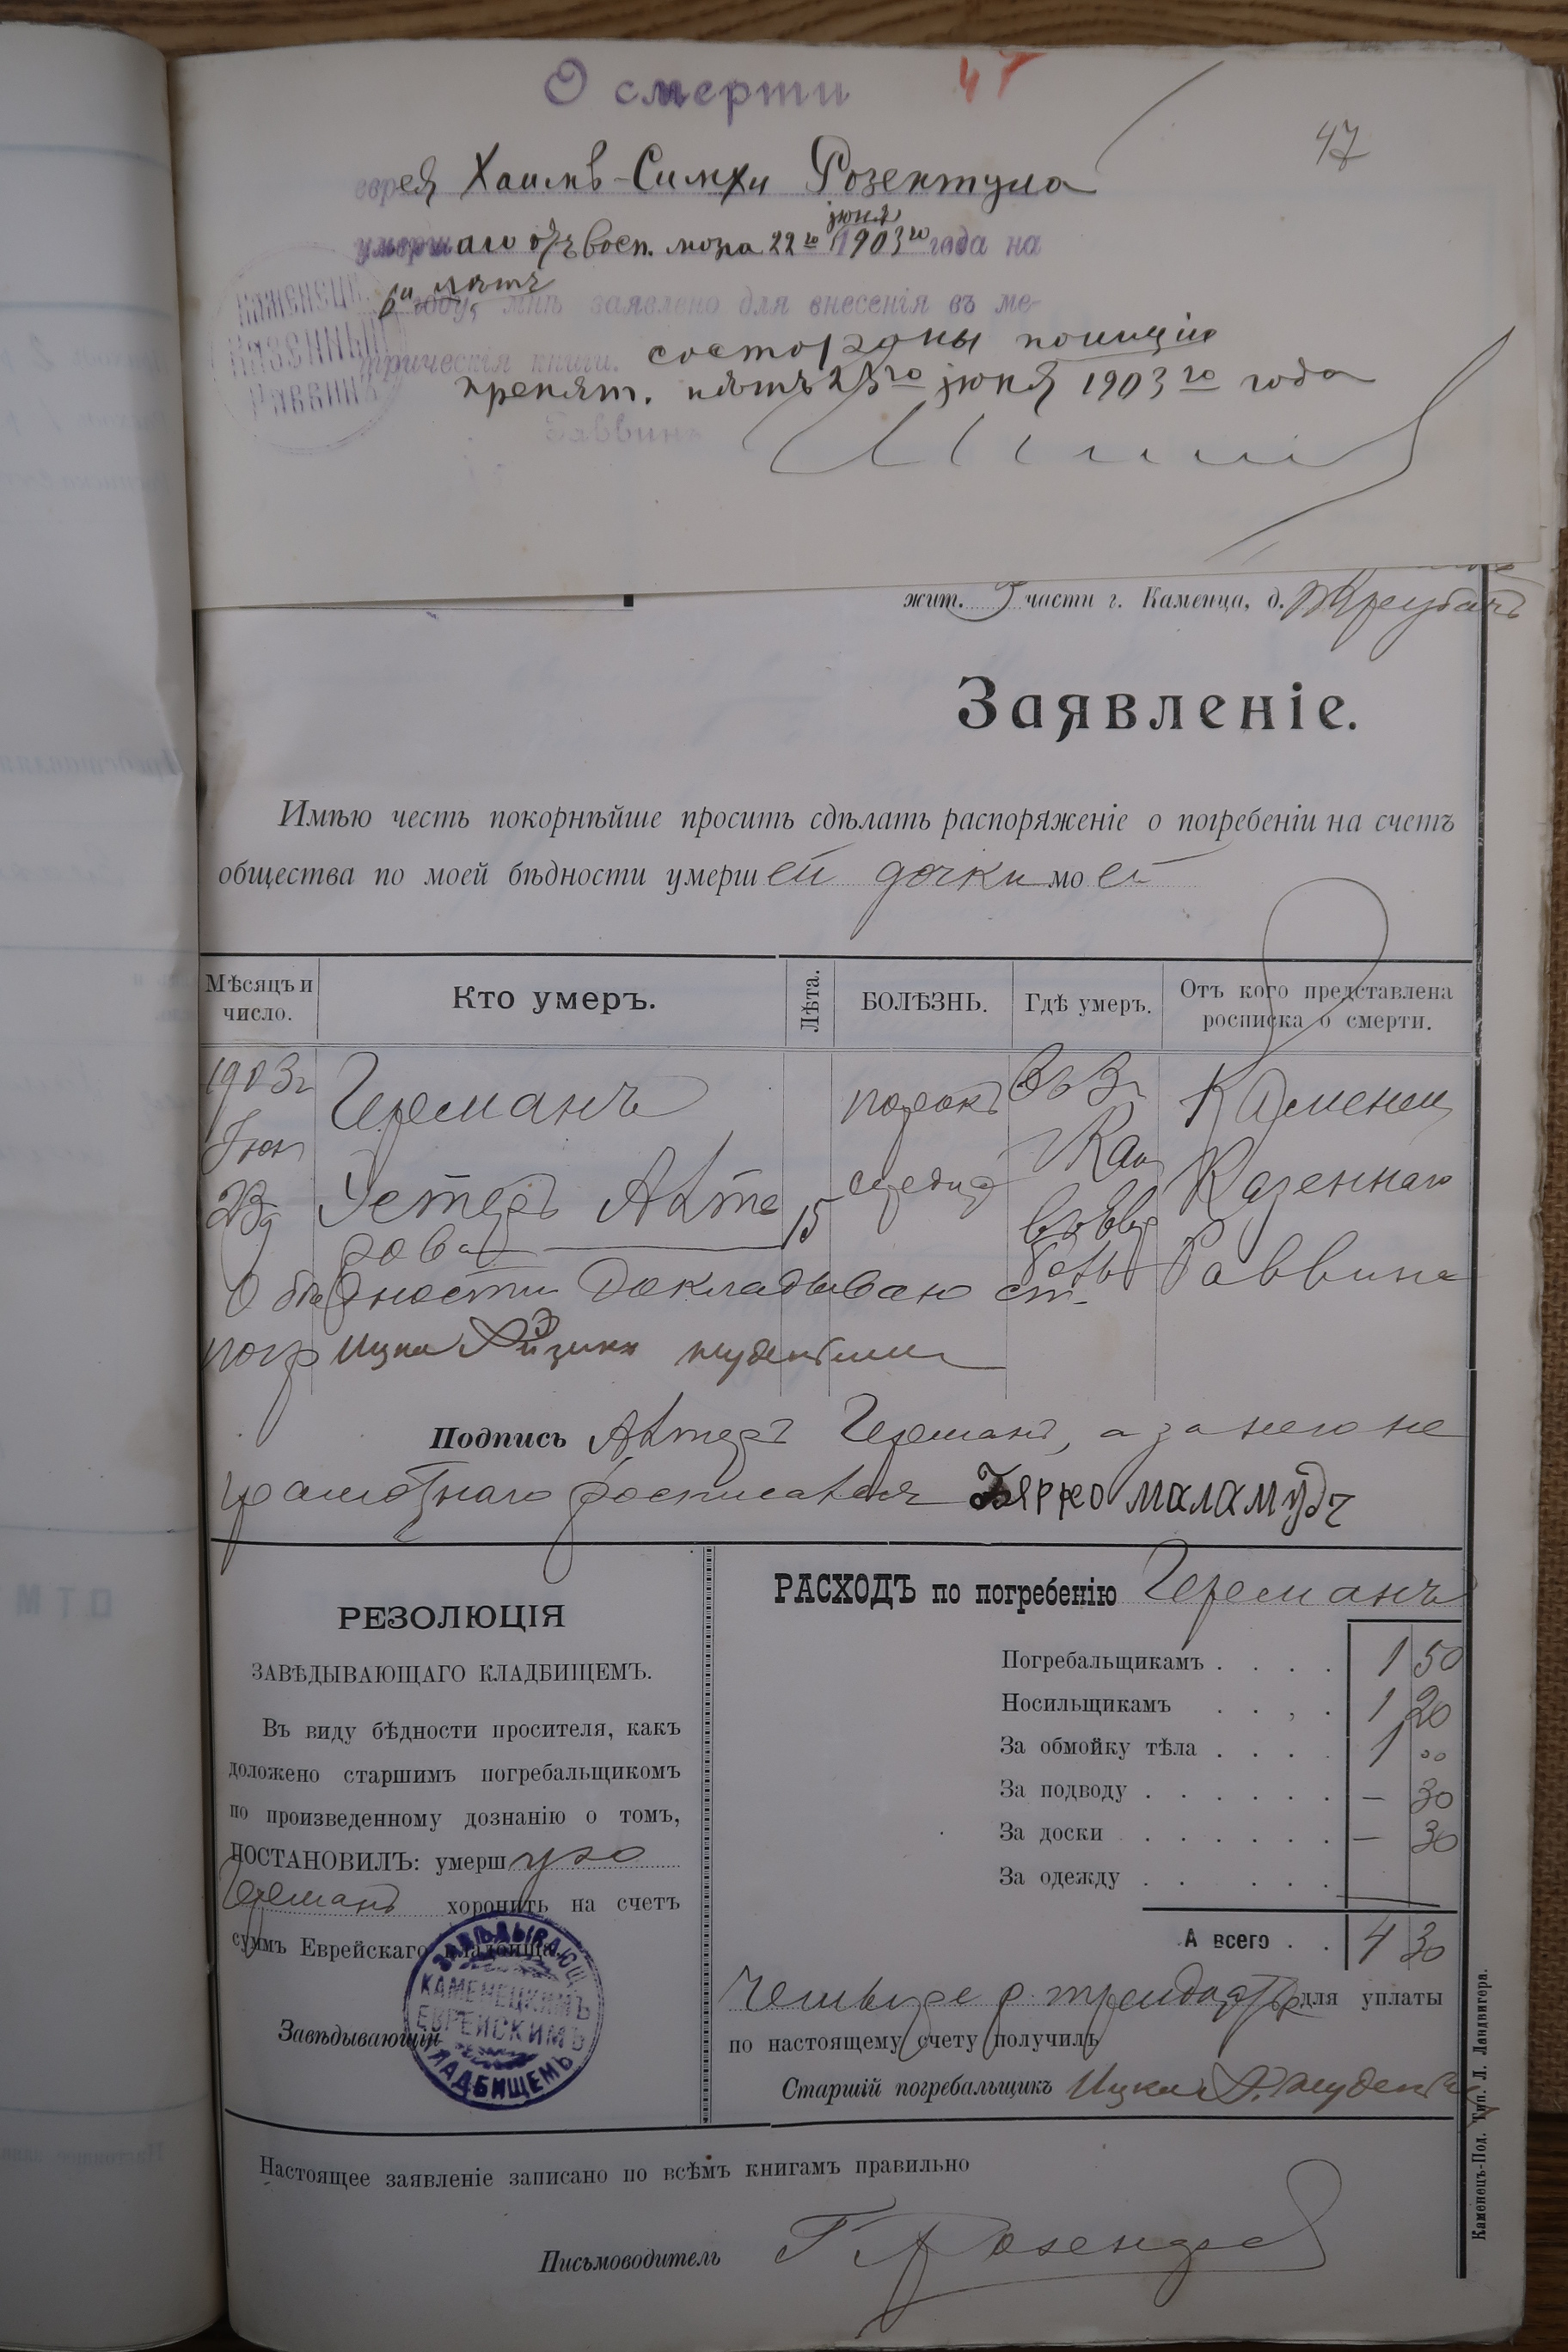 О смерти
47
47
еврея Хаимъ-Симхи Розентула
умершаго отъ восп. мозга 22го июня 1903го года на
6и лѣтъ
году, мнѣ заявлено для внесенія въ ме-
трическія книги. со стороны полиціи
препят. нѣтъ 23го июня 1903го года
Каменецк.
Казенный
Раввинъ
Раввинъ
жит. части г. Каменца, д.
Заявленіе.
Имѣю честь покорнѣйше просить сдѣлать распоряженіе о погребеніи на счетъ
общества по моей бѣдности умершей дочки моей
Мѣсяцъ и число.
Кто умеръ.
Лѣта.
БОЛѢЗНЬ.
Гдѣ умеръ.
Отъ кого представлена росписка о смерти.
1903г Германъ порокъ въ г. Каменец
Іюн Кам Казеннаго
23 Естеръ Алте 15 сердца
рова Раввина
О бѣдности докладываю ст.
погр Ицко
Подпись Алтеръ Германъ, а за него не
грамотнаго росписался Берко Маламудъ
РЕЗОЛЮЦІЯ
ЗАВѢДЫВАЮЩАГО КЛАДБИЩЕМЪ.
Въ виду бѣдности просителя, какъ
доложено старшимъ погребальщикомъ
по произведенному дознанію о томъ,
ПОСТАНОВИЛЪ: умершую
Германъ хоронить на счетъ
суммъ Еврейскаго кладбища.
Завѣдывающій
ЗАВѢДЫВАЮЩ.
КАМЕНЕЦКИМЪ
ЕВРЕЙСКИМЪ
КЛАДБИЩЕМЪ
РАСХОДЪ по погребенію Германъ
Погребальщикамъ . . . . 1 50
Носильщикамъ . . , . 1 20
За обмойку тѣла . . . . 1 00
За подводу . . . . . . — 30
За доски . . . . . . — 30
За одежду . . . . .
А всего . . 4 30
Четыре р. тридцать для уплаты
по настоящему счету получилъ
Старшій погребальщикъ Ицко
Каменецъ-Под. Тип. Л. Ландвигера.
Настоящее заявленіе записано по всѣмъ книгамъ правильно
Письмоводитель